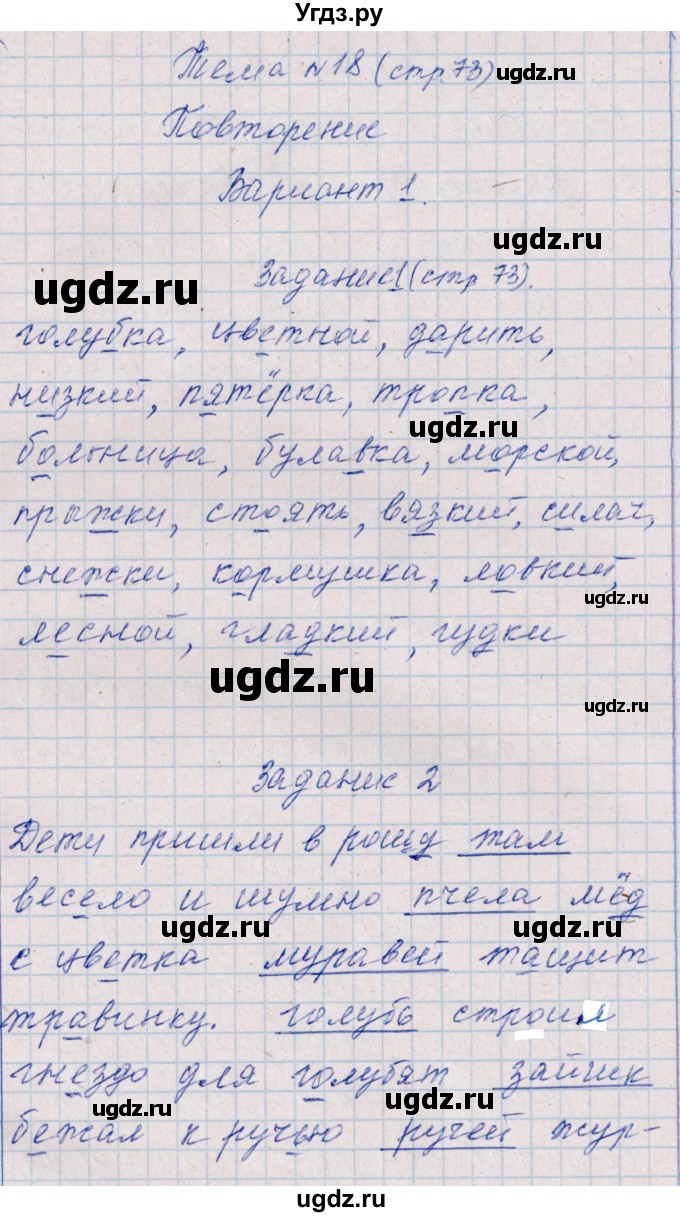 Угдз.ру
Тема №18 (стр. 73) ugdz.ru
Повторение
Вариант 1.
ugdz.ru
Задание1 (стр 73).
ugdz.ru
голубка, цветной, дарить,
низкий, пятёрка, тропка,
ugdz.ru
больница, булавка, морской,
прыжки, стоять, вязкий, силач,
снежки, кормушка, ловкий,
ugdz.ru
лесной, гладкий, гудки
ugdz.ru
ugdz.ru
Задание 2
Дети пришли в рощу там
весело и шумно пчела мёд
ugdz.ru
с цветка муравей тащит
травинку. голубь строил
гнездо для голубят зайчик
ugdz.ru ugdz.ru
бежал к ручью ручей жур-
ugdz.ru